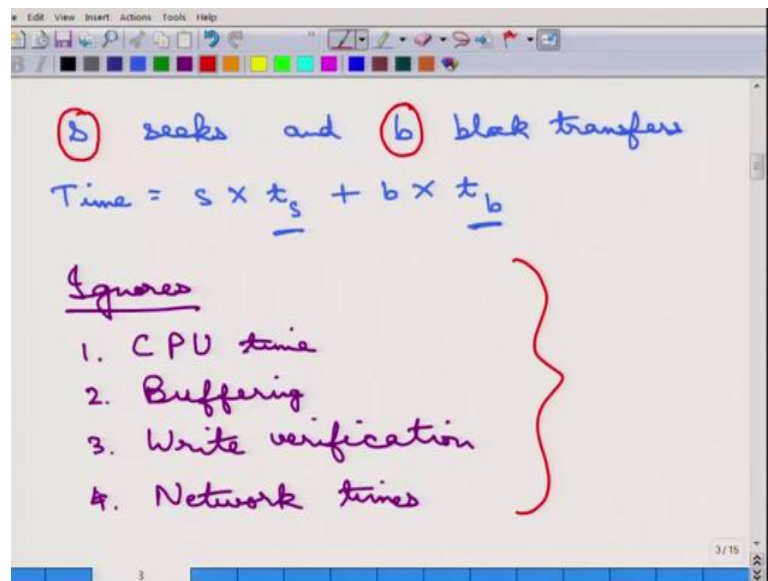 Edit View Insert Actions Tools Help
s seeks and b block transfers
Time = s × t_s + b × t_b
Ignores
1. CPU time
2. Buffering
3. Write verification
4. Network times
3/15
3